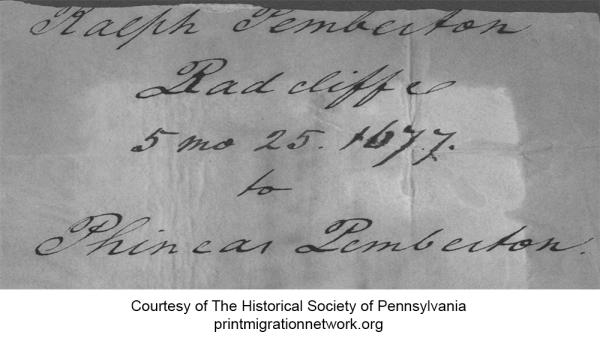 Ralph Pemberton
Radcliffe
5 mo 25. 1677.
to
Phineas Pemberton.
Courtesy of The Historical Society of Pennsylvania
printmigrationnetwork.org